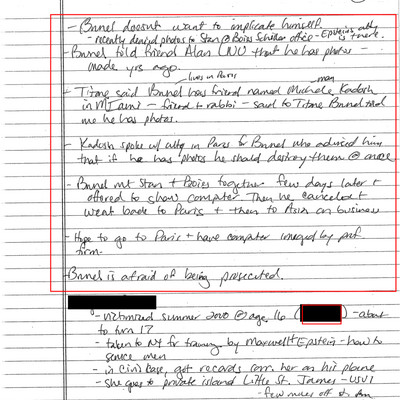 - Brunel doesn't want to implicate himself.
- recently denied photos to Stan @ Boies Schiller office - Epstein's atty is there.
- Brunel told friend Alan LNU that he has photos -
made yrs ago.
lives in Paris
man
- Titone said Brunel has friend named Michele Kadosh
in Miami - friend to rabbi - said to Titone Brunel told
me he has photos.
- Kadosh spoke w/ atty in Paris for Brunel who advised him
that if he has photos he should destroy them @ once.
- Brunel mt Stan + Boies together few days later +
offered to show computer. Then he canceled +
went back to Paris + then to Asia on business
- Hope to go to Paris + have computer imaged by prof.
firm.
- Brunel is afraid of being prosecuted.
- victimized summer 2000 @ age 16 ( ) - about
to turn 17
- taken to NY for training by Maxwell + Epstein - how to
service men
- in civil case, got records corr. her on his plane
- she goes to private island Little St. James - USVI
- few miles off St.